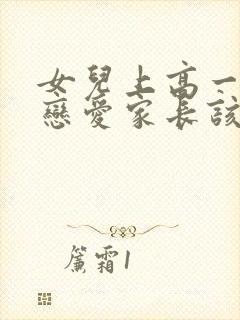 女兒上高一
戀愛家長該
簾霜1